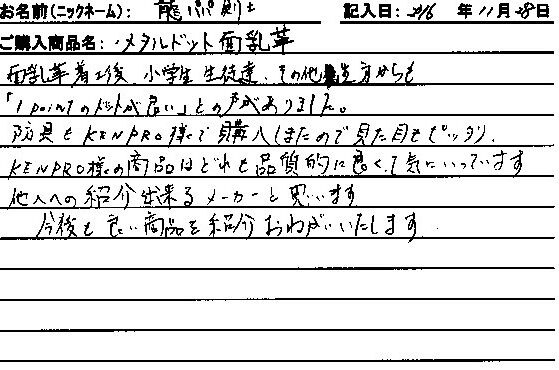 お名前(ニックネーム): 龍パパ剣士 記入日: 2016 年 11月 28日
ご購入商品名: メタルドット面乳革
面乳革着工後、小学生生徒達、その他先生方からも
「1 pointのドットが良い」との声がありました。
防具もKENPRO様で購入しましたので見た目もピッタリ。
KENPRO様の商品はどれも品質的に良くて気にいっています
他人への紹介出来るメーカーと思います
今後も良い商品を紹介おねがいいたします